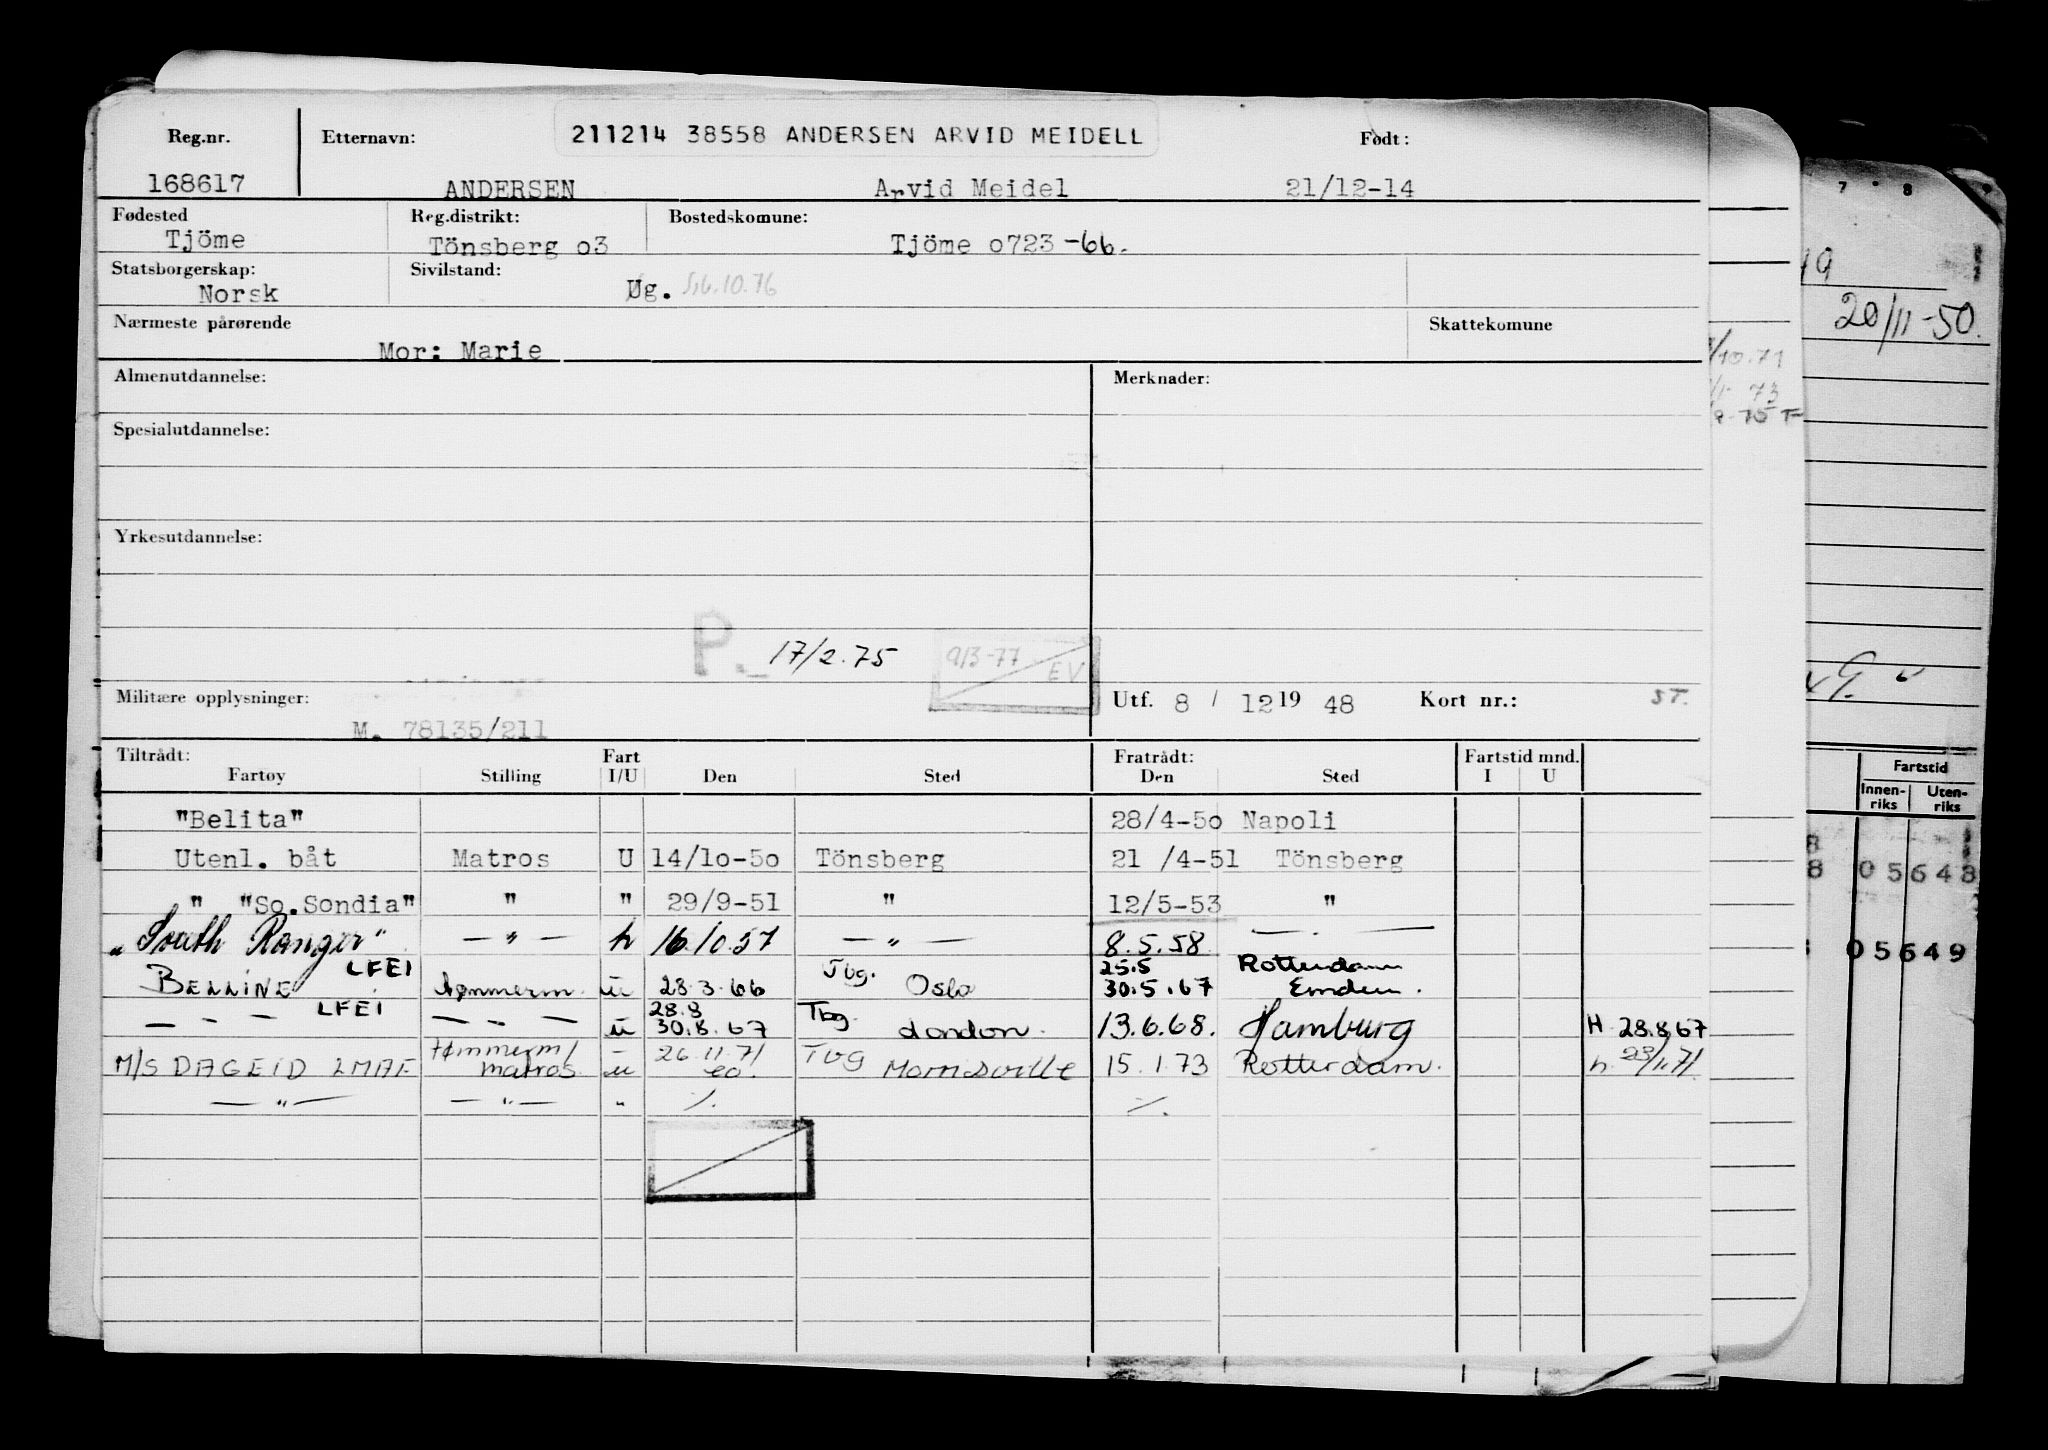 Reg.nr. Etternavn: 211214 38558 ANDERSEN ARVID MEIDELL Født:
168617 ANDERSEN Arvid Meidel 21/12-14
Fødested Reg.distrikt: Bostedskomune:
Tjöme Tönsberg o3 Tjöme o723 -66.
Statsborgerskap: Sivilstand:
Norsk Ug. 10.76
Nærmeste pårørende Skattekomune
Mor: Marie
Almenutdannelse: Merknader:
Spesialutdannelse:
Yrkesutdannelse:
P. 17/2.75 9/3-77 EV
Militære opplysninger: Utf. 8 / 12 19 48 Kort nr.: ST.
M. 78135/211
Tiltrådt: Fart Fratrådt: Fartstid mnd.
Fartøy Stilling I/U Den Sted Den Sted I U
"Belita" 28/4-5o Napoli
Utenl. båt Matros U 14/1o-5o Tönsberg 21 /4-51 Tönsberg
" "So.Sondia" " " 29/9-51 " 12/5-53 "
"South Ranger" — " — h 16.10.57 — " — 8.5.58 — " —
BELLINE LFEI Tømmerm. u 28.3.66 Tbg. Oslo 25.5 30.5.67 Rotterdam Emden.
— " — LFEI — " — u 28.8 30.8.67 Tbg. London. 13.6.68. Hamburg H 28.8.67
M/S DAGEID LMAE Tømmerm/ matros u 26.11.71 eo. Tbg Morrisville 15.1.73 Rotterdam. h. 23/11.71
— " — — " — " %. %.
7 8
49
20/11-50.
/10.71
73
75
Fartstid
Innen-riks Uten-riks
8
8 05648
05649